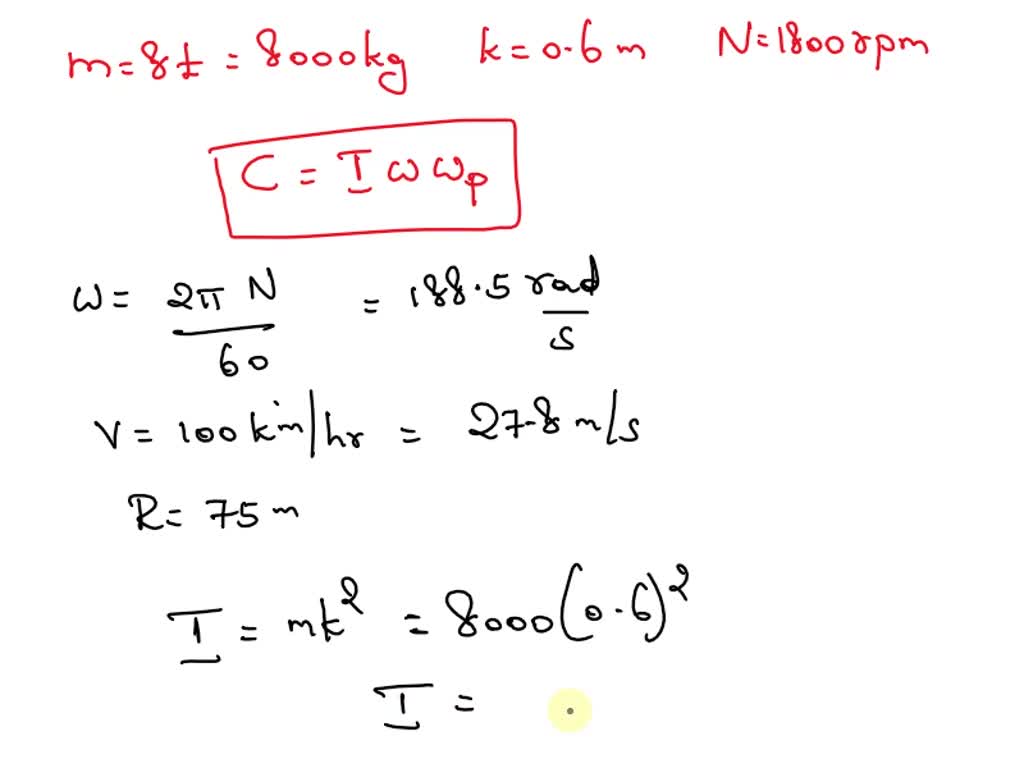 m=8t = 8000kg k=0.6m N=1800rpm
C = I ω ωp
ω = 2π N / 60 = 188.5 rad/s
V = 100 km/hr = 27.8 m/s
R = 75 m
I = mk² = 8000(0.6)²
I =